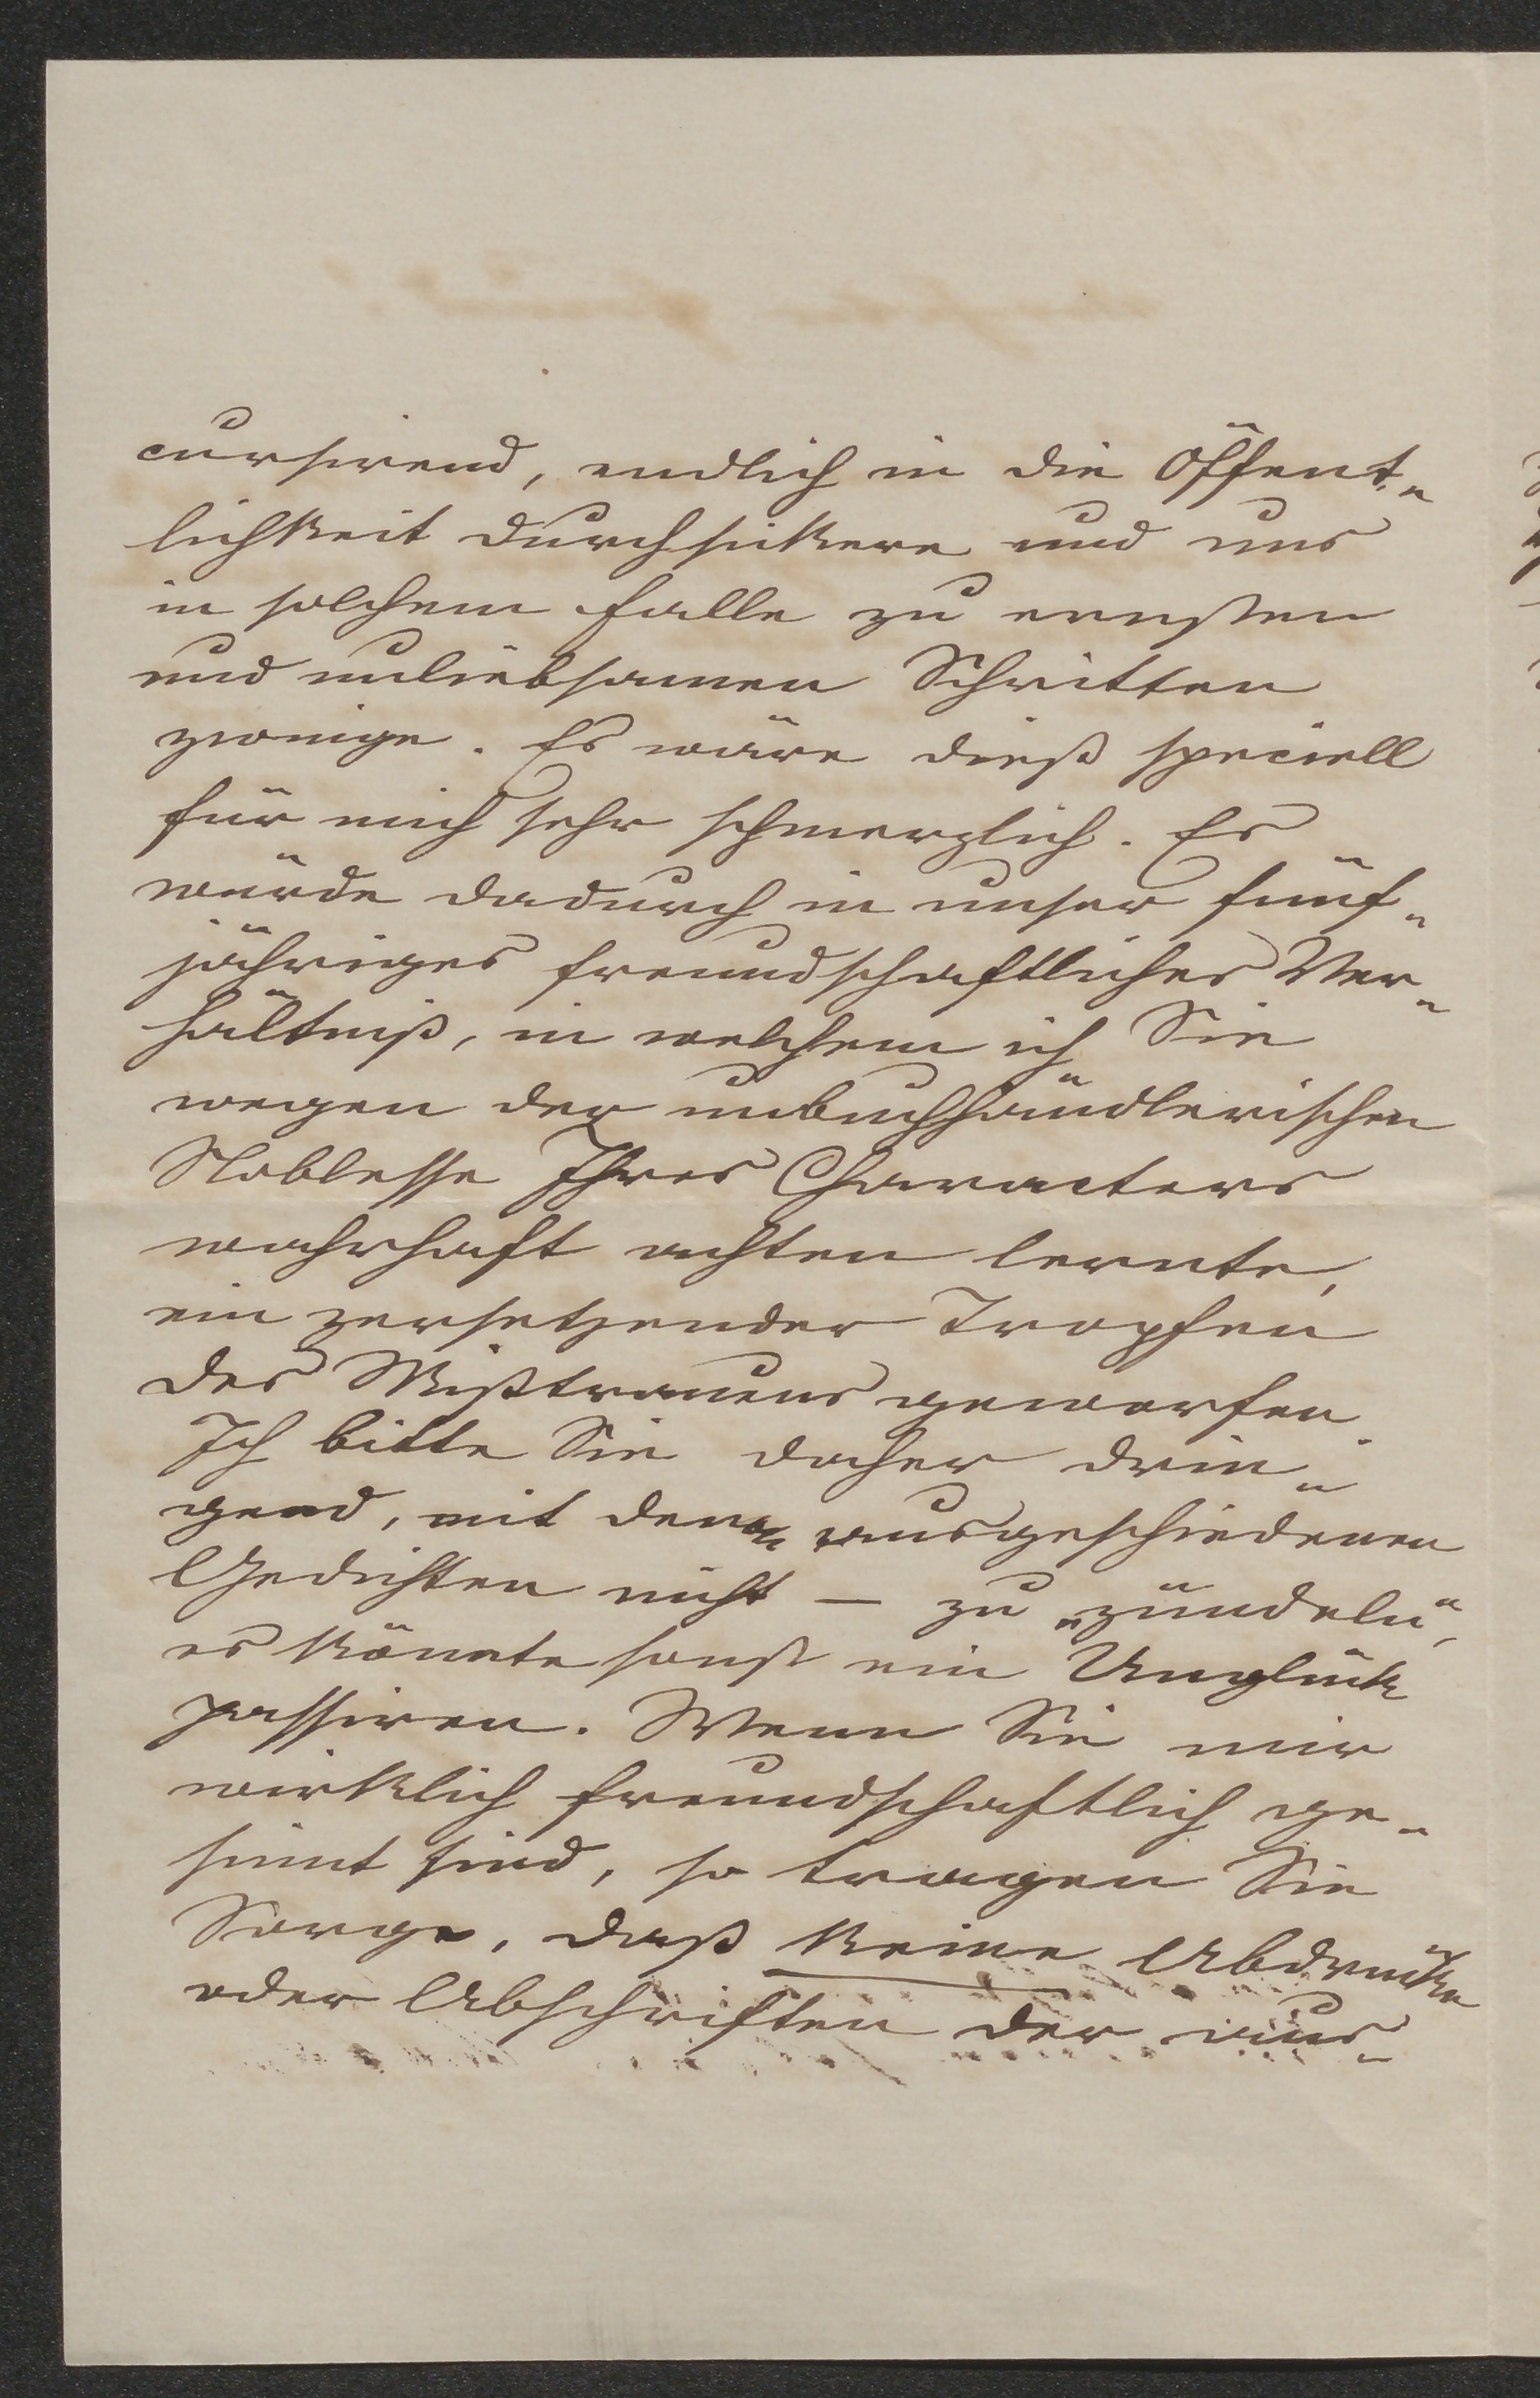 cursirend, endlich in die Öffent-
lichkeit durchsikere und uns
in solchem Falle zu ernsten
und unliebsamen Schritten
zwinge. Es wäre dieß speciell
für mich sehr schmerzlich. Es
würde dadurch in unser fünf-
jähriges freundschaftliches Ver-
hältniß, in welchem ich Sie
wegen der unbuchhändlerischen
Noblesse Ihres Characters
wahrhaft achten lernte,
ein zersetzender Tropfen
des Mißtrauens geworfen.
Ich bitte Sie daher drin-
gend, mit den ausgeschiedenen
Gedichten nicht – zu „zündeln“,
es könnte sonst ein Unglück
passiren. Wenn Sie mir
wirklich freundschaftlich ge-
sinnt sind, so tragen Sie
Sorge, daß keine Abdrücke
oder Abschriften der aus-